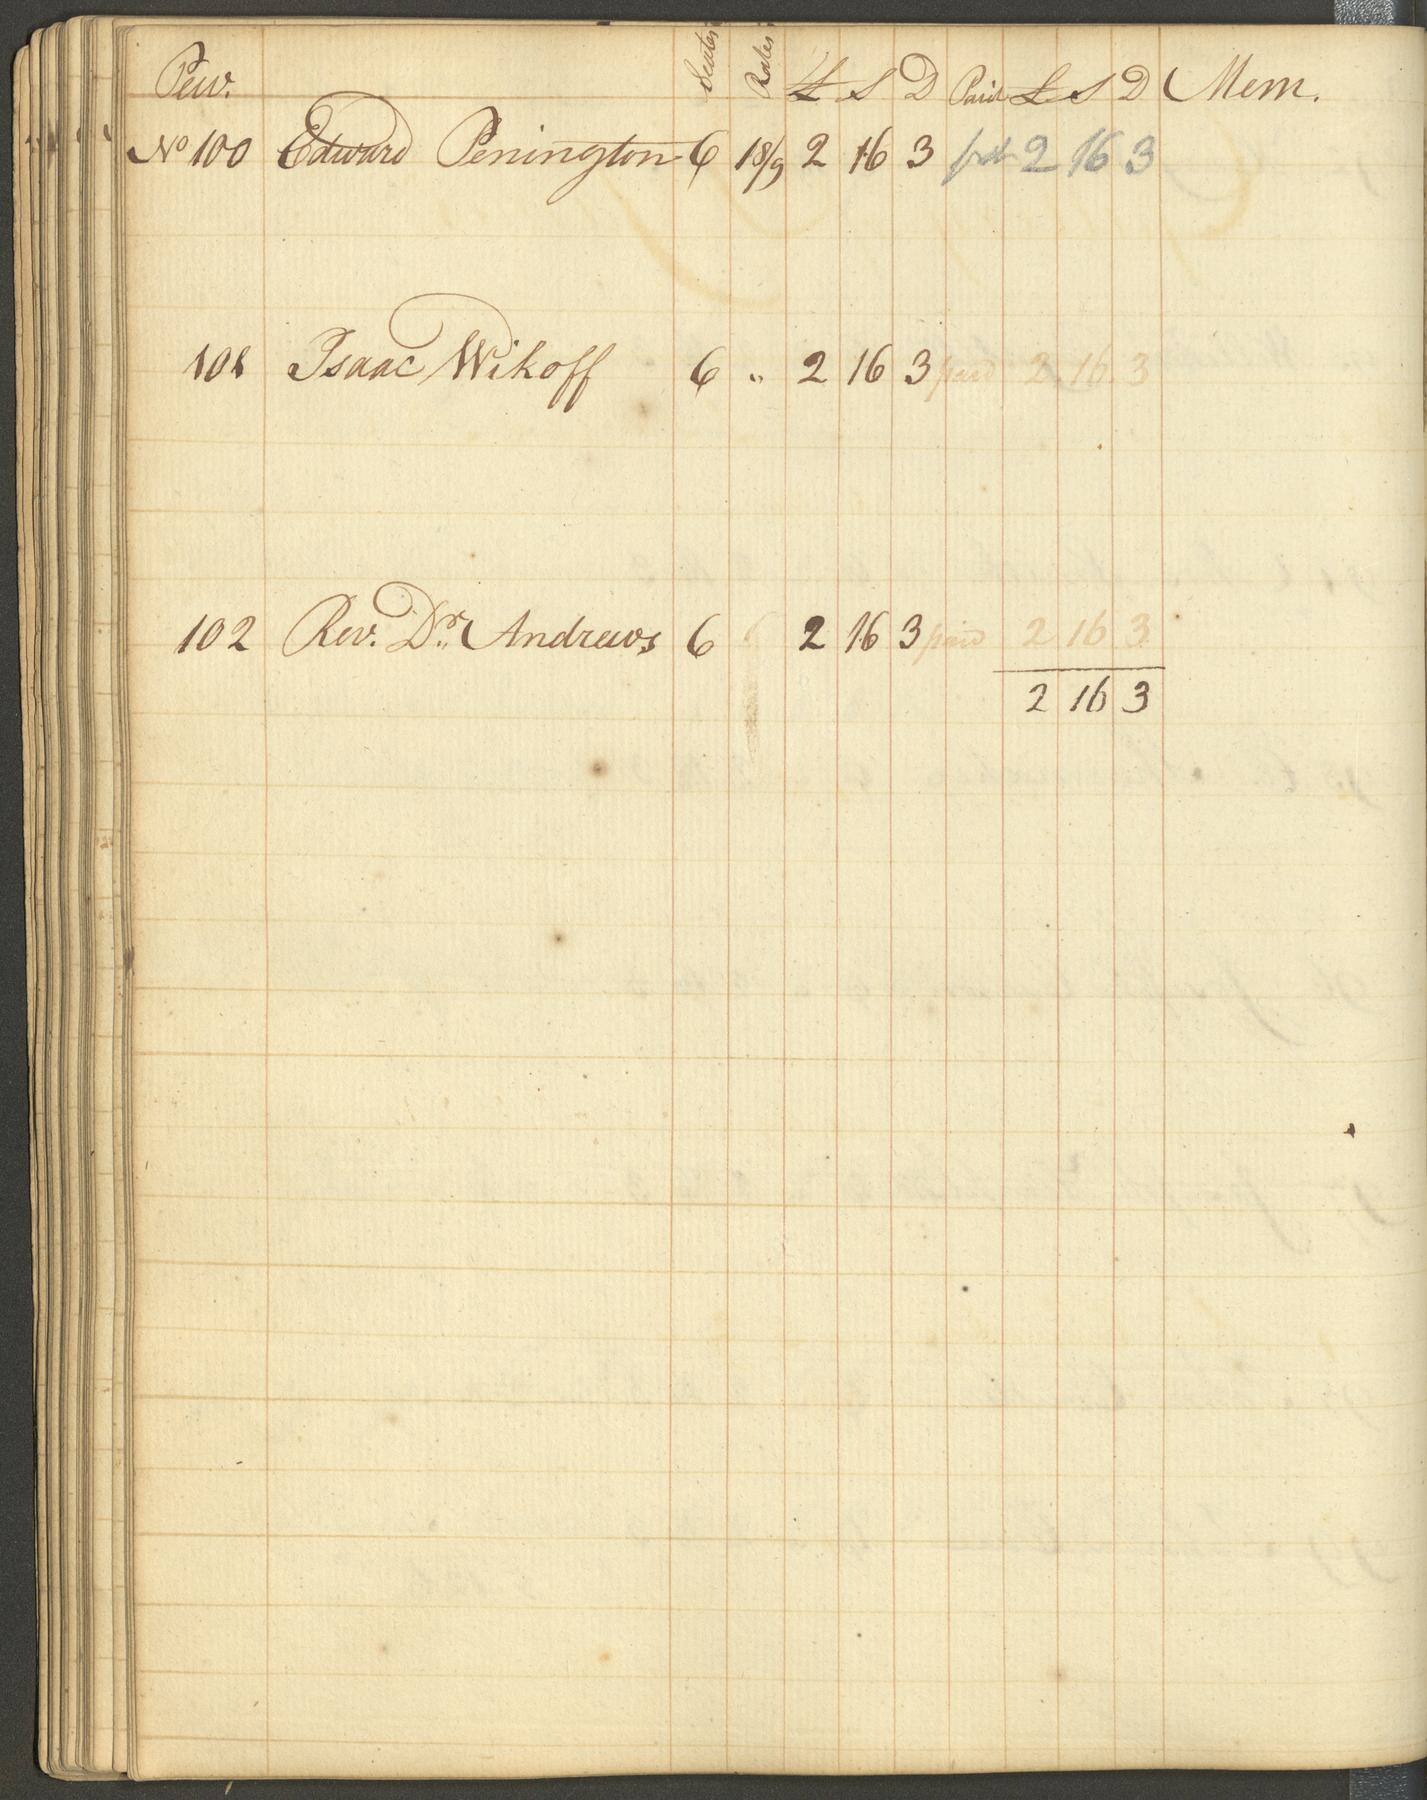 Pew. Seates Rates £ S D Paid £ S D Mem.
No 100 Edward Penington 6 18/9 2 16 3 2 16 3
101 Isaac Wikoff 6 " 2 16 3 paid 2 16 3
102 Rev. Dr. Andrews 6 2 16 3 paid 2 16 3
2 16 3